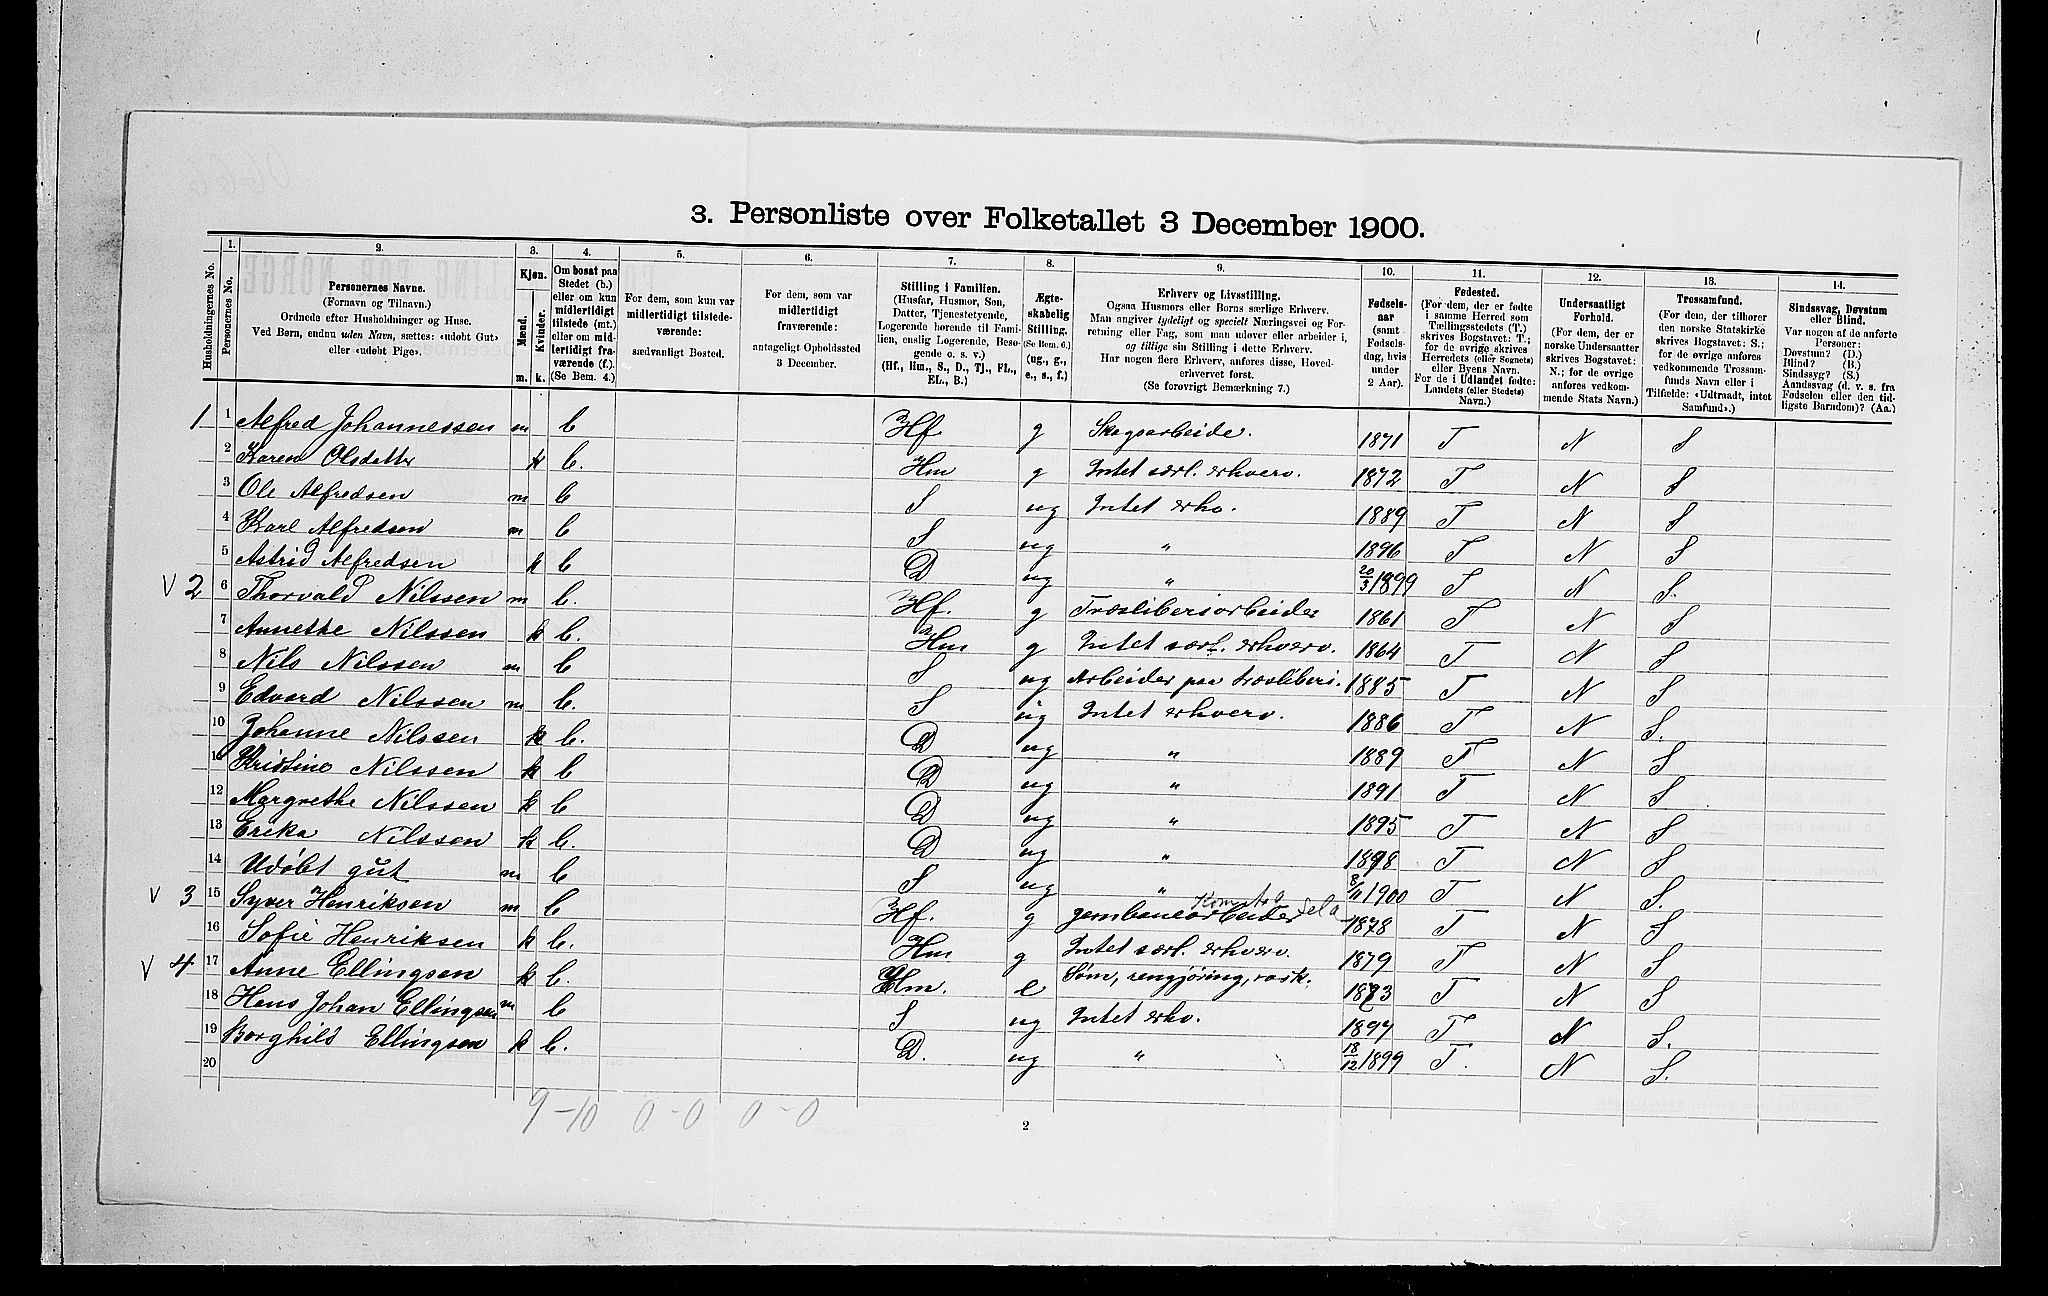 3. Personliste over Folketallet 3 December 1900.
Husholdningernes No.
1.
Personernes No.
2.
Personernes Navne.
(Fornavn og Tilnavn.)
Ordnede efter Husholdninger og Huse.
Ved Børn, endnu uden Navn, sættes: «udøbt Gut»
eller «udøbt Pige».
3.
Kjøn.
Mænd.
Kvinder.
m. k.
4.
Om bosat paa
Stedet (b.)
eller om kun
midlertidigt
tilstede (mt.)
eller om mid-
lertidigt fra-
værende (f.).
(Se Bem. 4.)
5.
For dem, som kun var
midlertidigt tilstede-
værende:
sædvanligt Bosted.
6.
For dem, som var
midlertidigt
fraværende:
antageligt Opholdssted
3 December.
7.
Stilling i Familien.
(Husfar, Husmor, Søn,
Datter, Tjenestetyende,
Logerende hørende til Fami-
lien, enslig Logerende, Besø-
gende o. s. v.)
(Hf., Hm., S., D., Tj., FL.,
EL., B.)
8.
Ægte-
skabelig
Stilling.
(Se Bem. 6.)
(ug., g.,
e., s., f.)
9.
Erhverv og Livsstilling.
Ogsaa Husmors eller Børns særlige Erhverv.
Man angiver tydeligt og specielt Næringsvei og For-
retning eller Fag, som man udøver eller arbeider i,
og tillige sin Stilling i dette Erhverv.
Har nogen flere Erhverv, anføres disse, Hoved-
erhvervet først.
(Se forøvrigt Bemærkning 7.)
10.
Fødsels-
aar
(samt
Fødsels-
dag, hvis
under
2 Aar).
11.
Fødested.
(For dem, der er fødte
i samme Herred som
Tællingsstedets (T.)
skrives Bogstavet: T.;
for de øvrige skrives
Herredets (eller Sognets)
eller Byens Navn.
For de i Udlandet fødte:
Landets (eller Stedets)
Navn.)
12.
Undersaatligt
Forhold.
(For dem, der er
norske Undersaatter
skrives Bogstavet:
N.; for de øvrige
anføres vedkom-
mende Stats Navn.)
13.
Trossamfund.
(For dem, der tilhører
den norske Statskirke
skrives Bogstavet: S.;
for de øvrige anføres
vedkommende Trossam-
funds Navn eller i
Tilfælde: «Udtraadt, intet
Samfund».)
14.
Sindssvag, Døvstum
eller Blind.
Var nogen af de anførte
Personer:
Døvstum? (D.)
Blind? (B.)
Sindssyg? (S.)
Aandssvag (d. v. s. fra
Fødselen eller den tid-
ligste Barndom)? (Aa.)
1 1 Alfred Johannessen m b Hf g Skogsarbeide. 1871 T N S
2 Karen Olsdatter k b. Hm g Intet særl. erhverv. 1872 T N S
3 Ole Alfredsen m b S ug Intet erhv. 1889 T N S
4 Karl Alfredsen m b S ug " 1896 T N S
5 Astrid Alfredsen k b D ug " 20/3 1899 T N S.
V 2 6 Thorvald Nilssen m b. Hf. g Træsliberiarbeider 1861 T N S
7 Annethe Nilssen k b. Hm g Intet særl. erhverv. 1864 T N S
8 Nils Nilssen m b S ug Arbeider paa træsliberi. 1885 T N S
9 Edvard Nilssen m b. S ug Intet erhverv. 1886 T N S.
10 Johanne Nilssen k b. D ug " 1889 T N S
11 Kristine Nilssen k b D ug " 1891 T N S
12 Margrethe Nilssen k b D ug " 1895 T N S
13 Erika Nilssen k b. D ug " 1898 T N S
14 Udøbt gut m b S ug " 8/11 1900 T N S.
V 3 15 Syver Henriksen m b Hf. g jernbanearbeider 1878 T N S
16 Sofie Henriksen k b. Hm g Intet særl. erhverv. 1879 T N S
V 4 17 Anne Ellingsen k b. Hm. e Søm, rengjøring, vask. 1873 T N S
18 Hans Johan Ellingsen m b S ug Intet erhv. 1897 T N S.
19 Borghild Ellingsen k b. D. ug " 18/12 1899 T. N S.
20
9-10 0-0 0-0
2